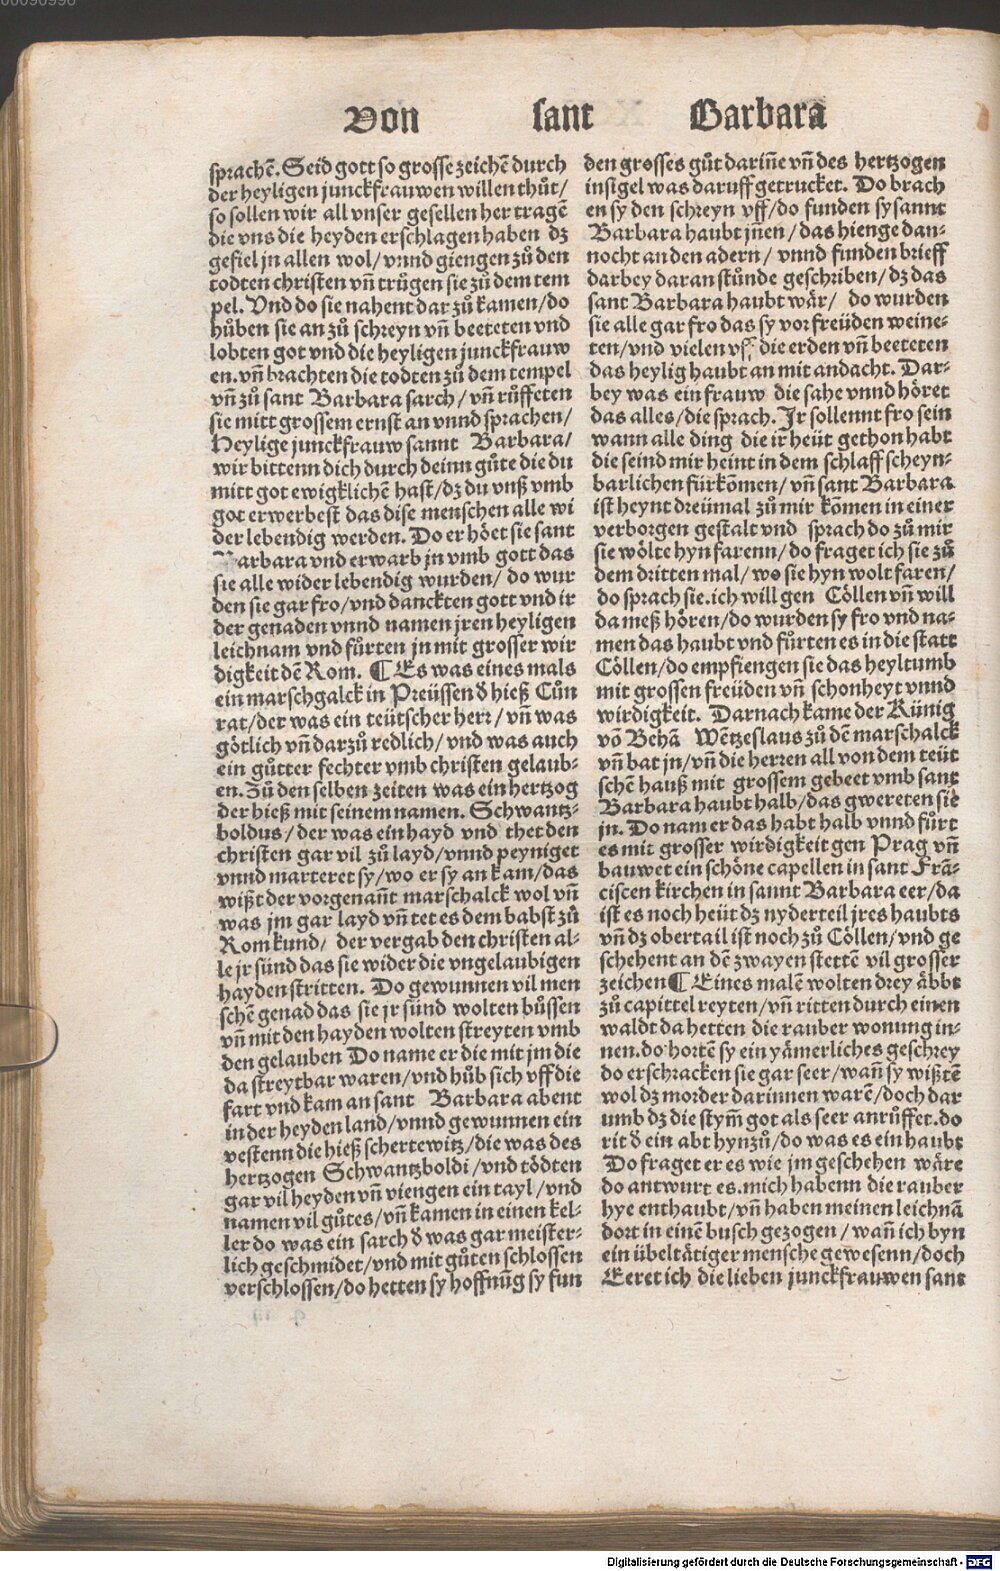 Von sant Barbara
sprachē. Seid gott so grosse zeichē durch
der heyligen junckfrauwen willen thůt/
so sollen wir all vnser gesellen her tragē
die vns die heyden erschlagen haben dz
gefiel jn allen wol/vnnd giengen zů den
todten christen vñ trůgen sie zů dem tem
pel. Vnd do sie nahent dar zů kamen/do
hůben sie an zů schreyn vñ beeteten vnd
lobten got vnd die heyligen junckfrauw
en. vñ brachten die todten zů dem tempel
vñ zů sant Barbara sarch/vñ růffeten
sie mitt grossem ernst an vnnd sprachen/
Heylige junckfrauw sannt Barbara/
wir bittenn dich durch deinn gůte die du
mitt got ewigklichē hast/dz du vnß vmb
got erwerbest das dise menschen alle wi
der lebendig werden. Do er höet sie sant
Barbara vnd erwarb jn vmb gott das
sie alle wider lebendig wurden/ do wur
den sie gar fro/vnd danckten gott vnd ir
der genaden vnnd namen jren heyligen
leichnam vnd fůrten jn mit grosser wir
digkeit dē Rom. ¶ Es was eines mals
ein marschgalck in Preüssen d̕ hieß Cůn
rat/der was ein teütscher herr/vñ was
götlich vñ darzů redlich/vnd was auch
ein gůtter fechter vmb christen gelaub⸗
en. Zů den selben zeiten was ein hertzog
der hieß mit seinem namen. Schwantz⸗
boldus/der was ein hayd vnd thet den
christen gar vil zů layd/vnnd peyniget
vnnd marteret sy/wo er sy an kam/das
wißt der vorgenañt marschalck wol vñ
was jm gar layd vñ tet es dem babst zů
Rom kund/ der vergab den christen al⸗
le jr sünd das sie wider die vngelaubigen
hayden stritten. Do gewunnen vil men
schē genad das sie jr sünd wolten bůssen
vñ mit den hayden wolten streyten vmb
den gelauben Do name er die mit jm die
da streytbar waren/vnd hůb sich vff die
fart vnd kam an sant Barbara abent
in der heyden land/vnnd gewunnen ein
vestenn die hieß schertewitz/die was des
hertzogen Schwantzboldi/vnd tödten
gar vil heyden vñ viengen ein tayl/vnd
namen vil gůtes/vñ kamen in einen kel⸗
ler do was ein sarch d̕ was gar meister⸗
lich geschmidet/vnd mit gůten schlossen
verschlossen/do hetten sy hoffnũg sy fun
den grosses gůt dariñe vñ des hertzogen
insigel was daruff getrucket. Do brach
en sy den schreyn vff/do funden sy sannt
Barbara haubt jñen/das hienge dan⸗
nocht an den adern/ vnnd funden brieff
darbey daran stůnde geschriben/dz das
sant Barbara haubt wär/ do wurden
sie alle gar fro das sy vor freüden weine⸗
ten/vnd vielen vff die erden vñ beeteten
das heylig haubt an mit andacht. Dar⸗
bey was ein frauw die sahe vnnd höret
das alles/die sprach. Ir sollennt fro sein
wann alle ding die ir heüt gethon habt
die seind mir heint in dem schlaff scheyn⸗
barlichen fürkōmen/vñ sant Barbara
ist heynt dreümal zů mir kōmen in einer
verborgen gestalt vnd sprach do zů mir
sie wölte hyn farenn/do fraget ich sie zů
dem dritten mal/wo sie hyn wolt faren/
do sprach sie. ich will gen Cöllen vñ will
da meß hören/do wurden sy fro vnd na⸗
men das haubt vnd fůrten es in die statt
Cöllen/do empfiengen sie das heyltumb
mit grossen freüden vñ schonheyt vnnd
wirdigkeit. Darnach kame der Künig
vō Behā Wētzeslaus zů dē marschalck
vñ bat jn/vñ die herren all von dem teüt
schē hauß mit grossem gebeet vmb sant
Barbara haubt halb/das gwereten sie
jn. Do nam er das habt halb vnnd fůrt
es mit grosser wirdigkeit gen Prag vñ
bauwet ein schöne capellen in sant Frā⸗
ciscen kirchen in sannt Barbara eer/da
ist es noch heüt dz nyderteil jres haubts
vñ dz obertail ist noch zů Cöllen/vnd ge
schehent an dē zwayen stettē vil grosser
zeichen ¶ Eines malē wolten drey äbbt
zů capittel reyten/vñ ritten durch einen
waldt da hetten die rauber wonung in⸗
nen. do hortē sy ein yämerliches geschrey
do erschracken sie gar seer/wañ sy wißtē
wol dz morder darinnen warē/doch dar
umb dz die stym̄ got als seer anrůffet. do
rit d̕ ein abt hynzů/do was es ein haubt
Do fraget er es wie jm geschehen wäre
do antwurt es. mich habenn die rauber
hye enthaubt/vñ haben meinen leichnā
dort in einē busch gezogen/wañ ich byn
ein übeltätiger mensche gewesenn/doch
Eeret ich die lieben junckfrauwen sant
Digitalisierung gefördert durch die Deutsche Forschungsgemeinschaft - DFG